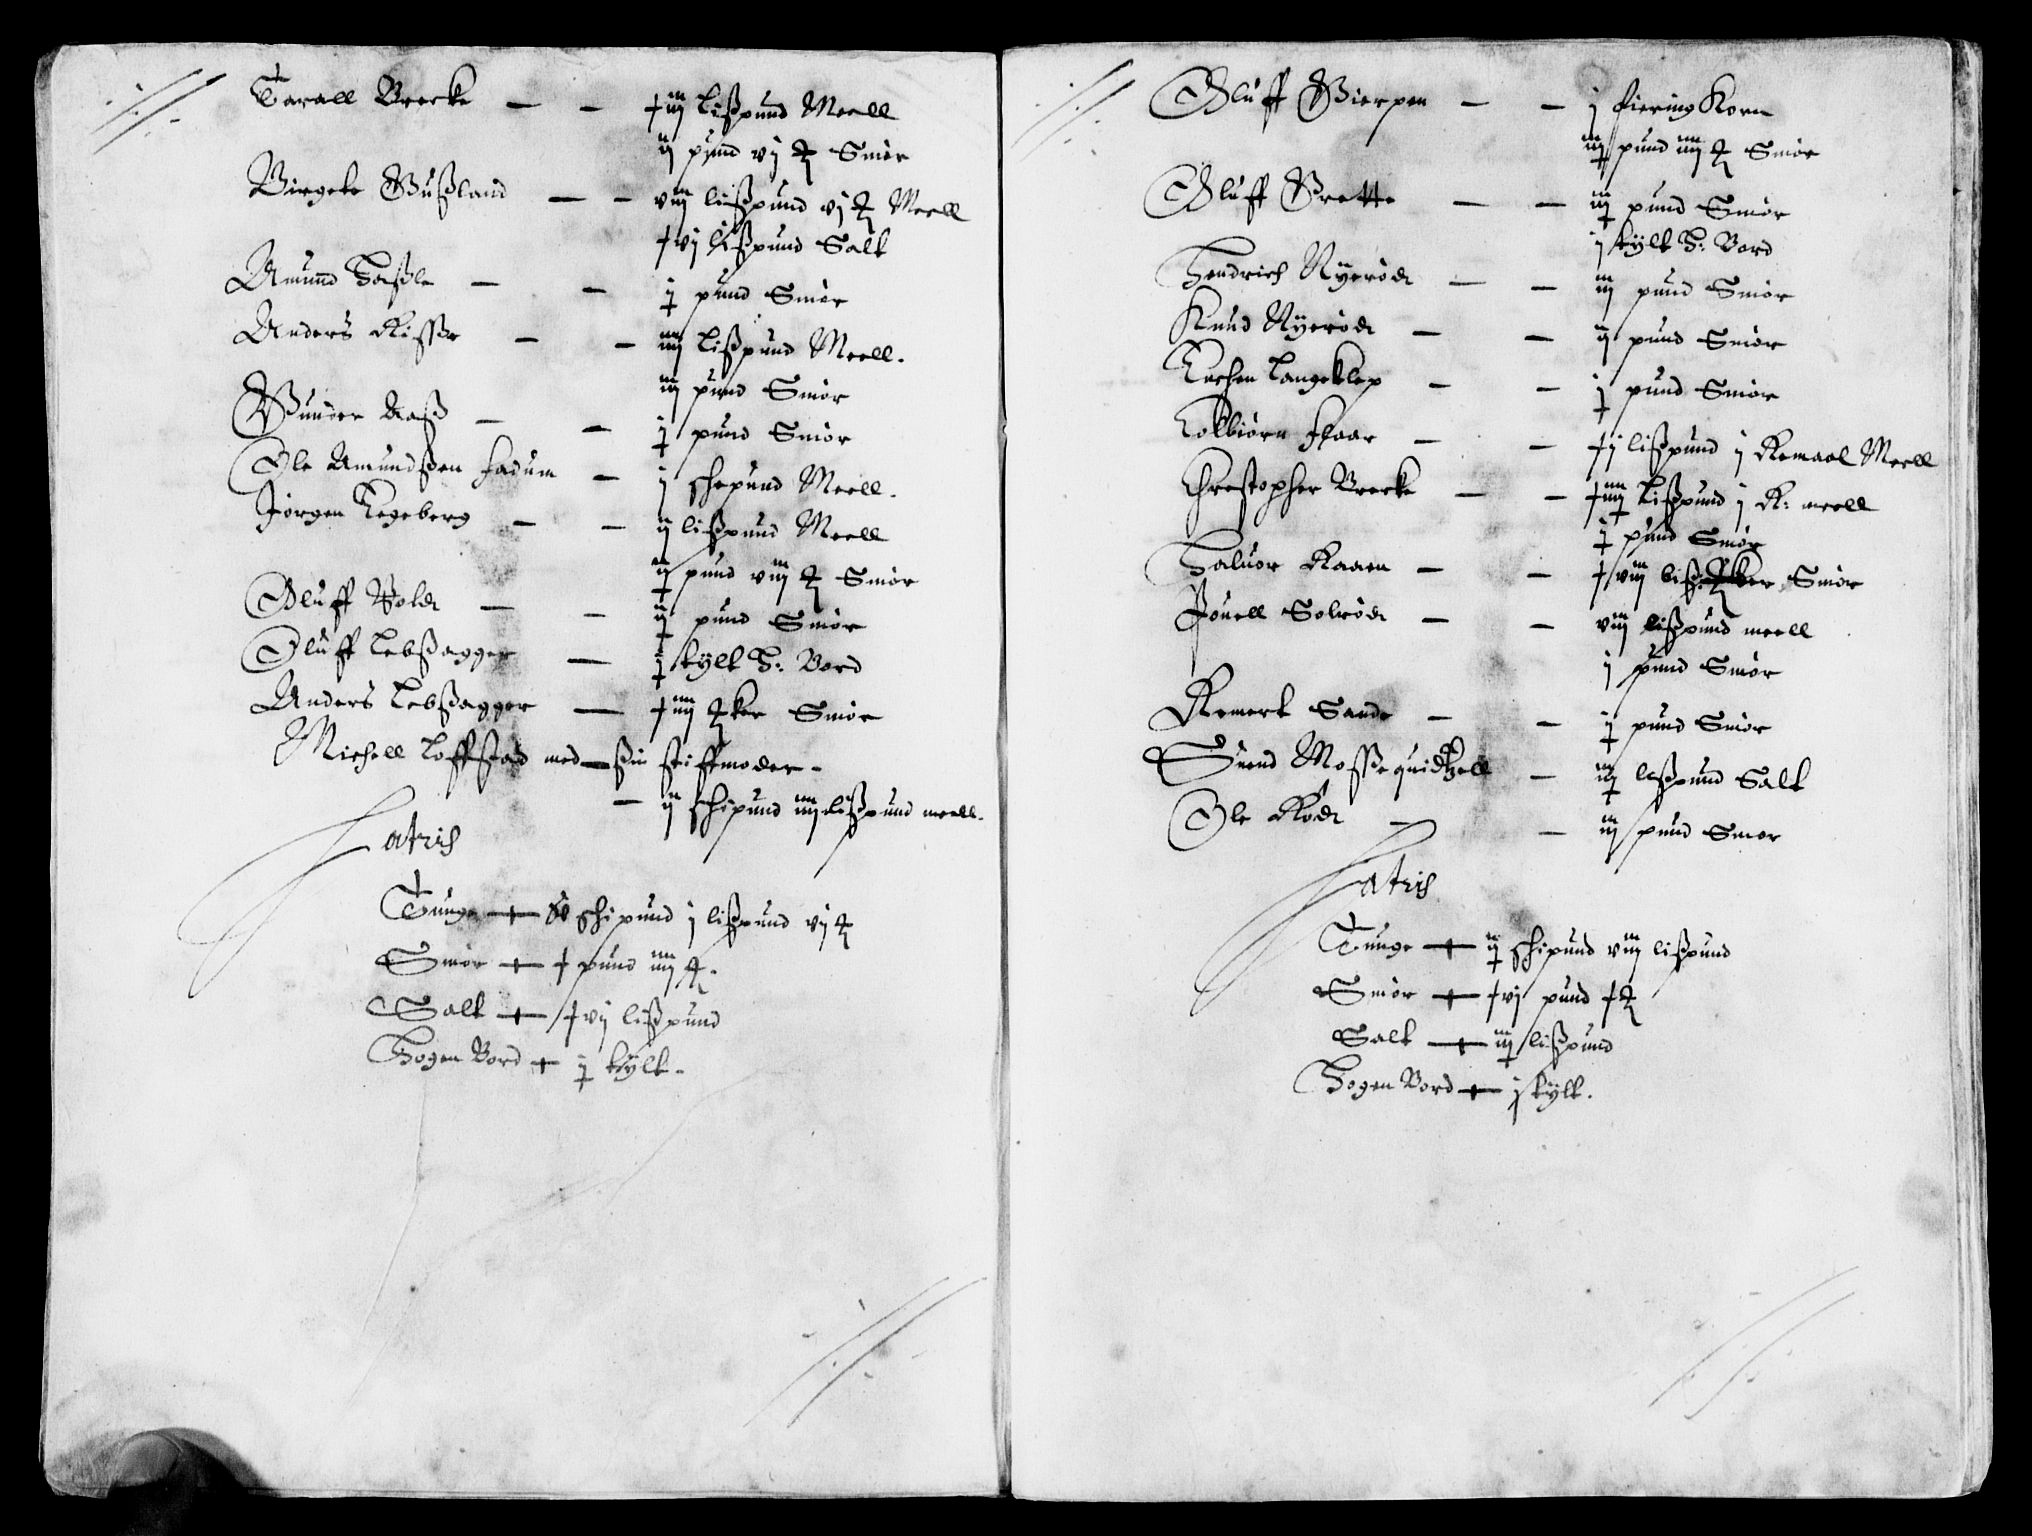 Tarall Brecke — — xiiij lißpund Meell
ij pund vj ℔ Smør
Birgete Gußland — — viij lißpund vj ℔ Meell
xvj lißpund Salt
Amund Haßle — — j pund Smør
Anders Risser — — iiij lißpund Meell.
iij pund Smør
Gunder Aaß — — j pund Smør
Ole Amundßen Fadum — j schepund Meell.
Jørgen Tegeberg — — ij lißpund Meell
ij pund viij ℔ Smør
Oluff Wold — — ij pund Smør
Oluff Lebßagger — j tylt H: Bord
Anders Lebßagger — xiiij ℔ker Smør
Michell Loffstad med ßin stiffmoder.
— ij schipund iiij lißpund meell.
Latris
Tunge — schipund j lißpund vj ℔
Smør — x pund iiij ℔.
Salt — xvj lißpund
Hogen Bord — j tylt.
Oluff Gierpen — — j fiering Korn
iij pund iiij ℔ Smør
Oluff Grette — — iij pund Smør
j tylt H: Bord
Hendrich Nyerød — — iij pund Smør
Knud Nyerød — — ij pund Smør
Tachen Langeklep — — j pund Smør
Tolbiørn Skaar — — xj lißpund j Remaal Meell
Chrestopher Brecke — — xiiij lißpund j R: meell
j pund Smør
Haluor Raaen — — xviij ℔ker Smør
Pouell Solrød — — viij lißpund meell
j pund Smør
Remert Sande — — j pund Smør
Suend Moßequidhell — iij lißpund Salt
Ole Rød — — iij pund Smør
Latris
Tunge — ij schipund viij lißpund
Smør — xvj pund x ℔
Salt — iij lißpund
Hogen Bord — j tylt.